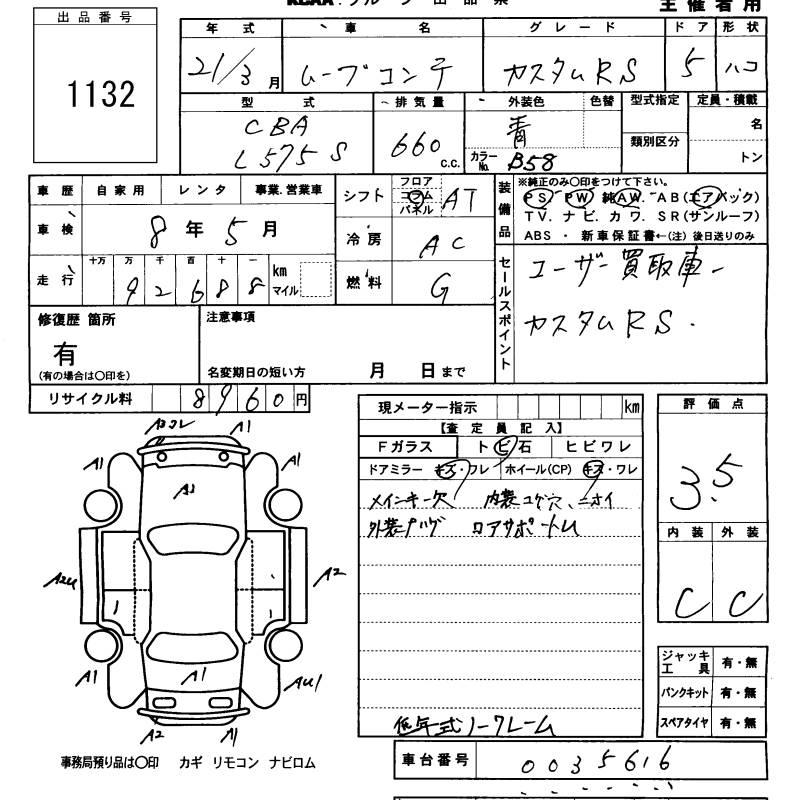 主催者用
出品番号
1132
年式 車名 グレード ドア 形状
21/3月 ムーブコンテ カスタムRS 5 ハコ
型式 排気量 外装色 色替 型式指定 定員・積載
CBA L575S 660c.c. 青 カラーNo. B58 類別区分 名 トン
車歴 自家用 レンタ 事業.営業車
車検 8年5月
走行 十万 万 千 百 十 一
92688 km マイル
シフト フロア コラム パネル AT
冷房 AC
燃料 G
装備品 ※純正のみ〇印をつけて下さい。
PS PW 純AW. AB(エアバック)
TV. ナビ. カワ. SR(サンルーフ)
ABS ・ 新車保証書←(注) 後日送りのみ
セールスポイント
ユーザー買取車
カスタムRS.
修復歴 箇所
有
(有の場合は〇印を)
注意事項
名変期日の短い方 月 日まで
リサイクル料 8960円
現メーター指示 km
【査定員記入】
Fガラス トビ石 ヒビワレ
ドアミラー キズ・ワレ ホイール(CP) キズ・ワレ
メインキー欠 内装コゲ穴、ニオイ
外装
低年式ノークレーム
評価点
3.5
内装 外装
C C
ジャッキ工具 有・無
パンクキット 有・無
スペアタイヤ 有・無
A1
A1 A1
A1
A2
A1 A1
A2 A1
事務局預り品は〇印 カギ リモコン ナビロム
車台番号 0035616